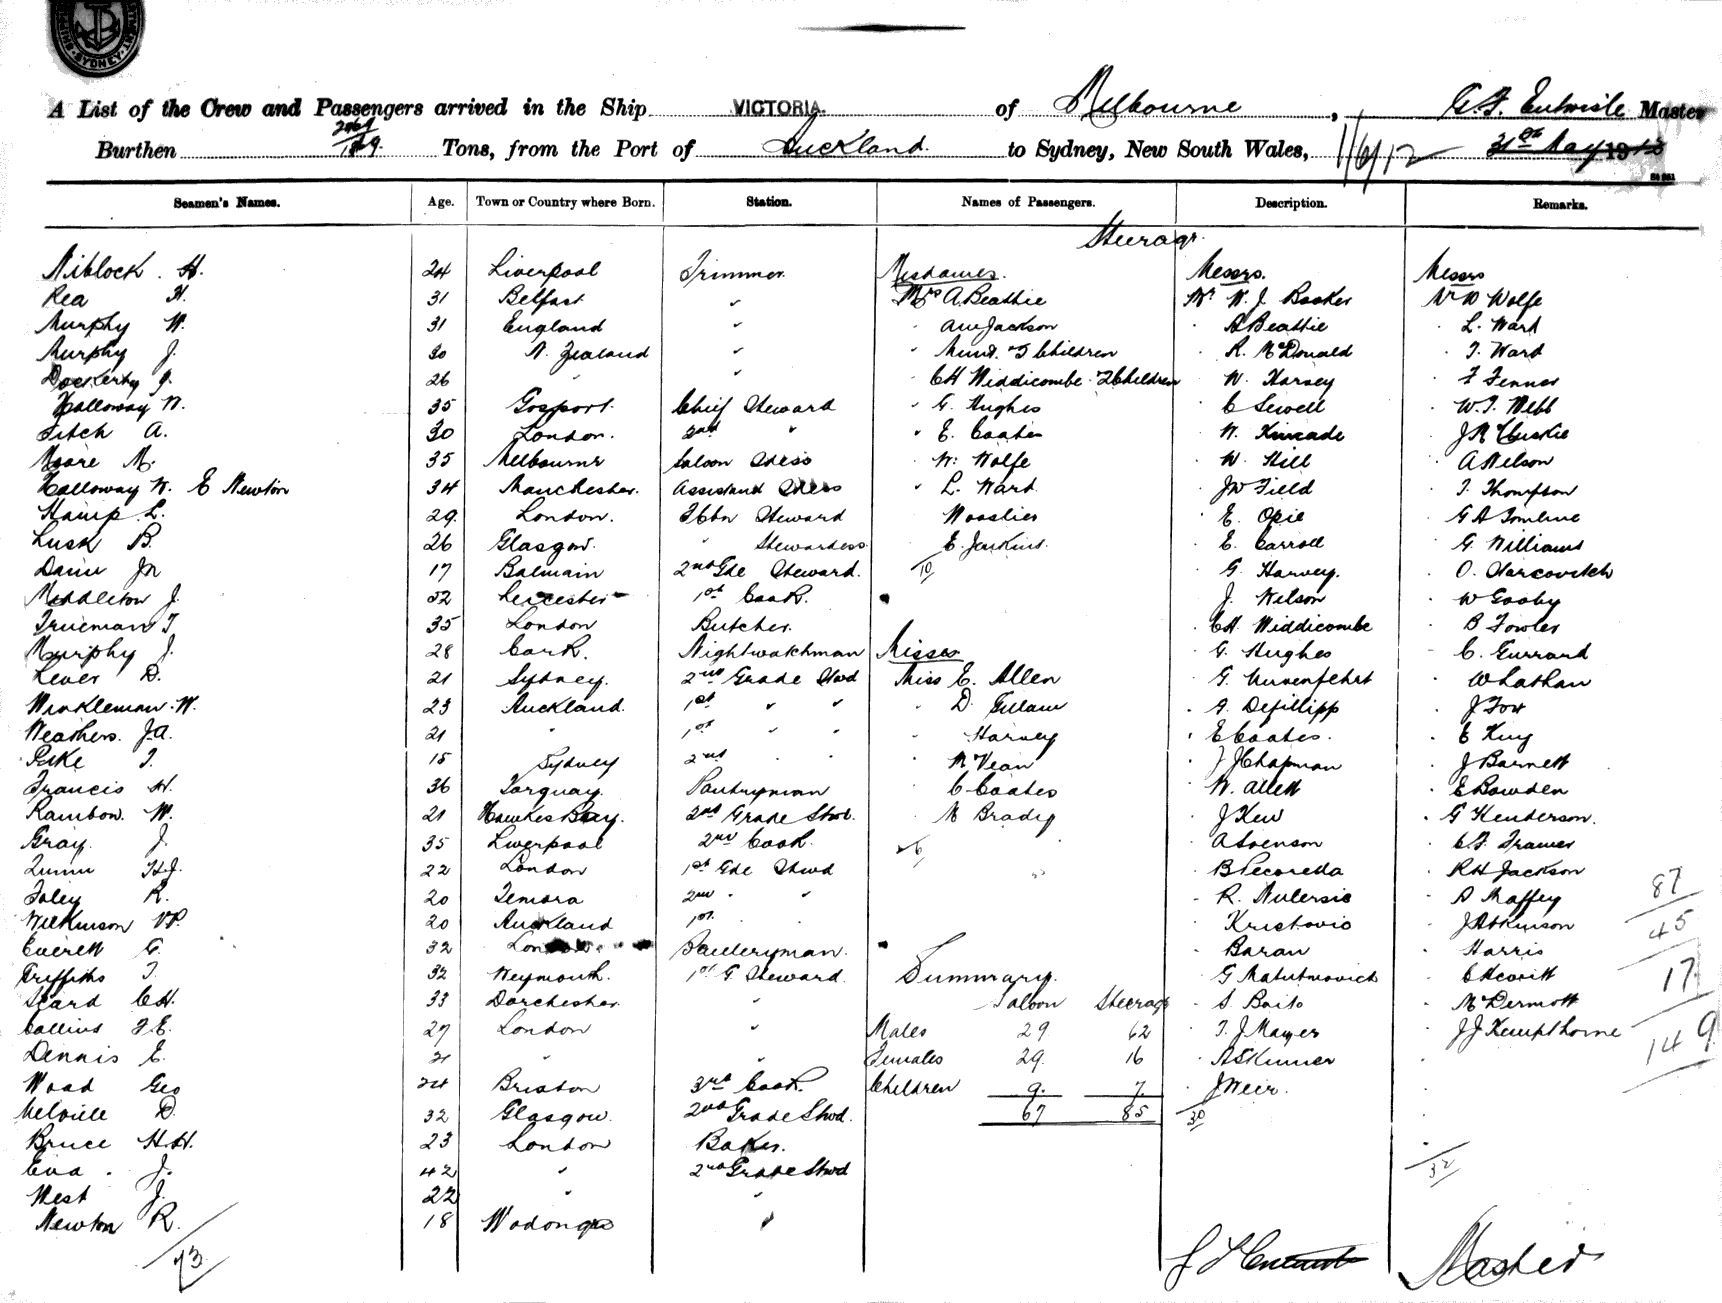 SYDNEY
A List of the Crew and Passengers arrived in the Ship VICTORIA. of Melbourne, G. F. Entwisle Master
Burthen Tons, from the Port of Auckland. to Sydney, New South Wales, 1/6/12 31st May 1912
Seamen's Names. Age. Town or Country where Born. Station. Names of Passengers. Description. Remarks.
Steerage.
Niblock. H. 24 Liverpool Trimmer. Mesdames. Messrs. Messrs
Rea H. 31 Belfast " Mrs A. Beattie Mr W. J. Booker Mr W Wolfe
Murphy W. 31 England " " Jackson " A Beattie " L. Ward
Murphy J. 30 N. Zealand " " Children " R. McDonald " T. Ward
Dockerty J. 26 " " " C H Widdicombe 2 Children " W. Harvey " F Fenner
Holloway W. 35 Gosport. Chief Steward " G. Hughes " C Sewell " W. T. Webb
Fitch A. 30 London. 2nd " " E. Coates " W. Kincade " J McCluskie
Moore M. 35 Melbourne Saloon Stdess " W. Wolfe " W Hill " A Nelson
Holloway W. E Newton 34 Manchester. Assistant Stdess " L. Ward " JW Field " T. Thompson
Hamp L. 29. London. Steward " " E. Opie " G A Tomline
Lusk B. 26 Glasgow. " Stewardess " E. Jenkins. " E. Carroll " G. Williams
17 Balmain 2nd Gde Steward. 10 " G. Harvey. " O. Marcovitch
Middleton J. 52 Leicester 1st Cook. " J. Nelson " W Gooby
Trueman T 35 London Butcher. " CH. Widdicombe " B Fowler
Murphy J. 28 Cork. Nightwatchman Misses " G. Hughes " C. Gurrard
Lever D. 21 Sydney. 2nd Grade Stwd Miss E. Allen " G. "
Winkleman. W. 23 Auckland. 1st " " " D. Gillam " A. Defillipp " J Fox
Weathers. J.A. 21 " 1st " " " Harvey " E Coates. " E King
Pike T. 15 Sydney 2nd " " " McVean " J Chapman " J Barnett
Francis H. 36 Torquay. Pantryman " C Coates " W. Allett " E Bowden
Rainbow. W. 21 Hawkes Bay. 2nd Grade Stwd. " M Brady " J Kew " G Henderson.
Gray. J. 35 Liverpool 2nd Cook. 6 " A Svenson " C. F. Frawer
Quinn H.J. 22 London 1st Gde Stwd " B Pecoretta " R H Jackson
Foley R. 20 Temora 2nd " " " R. " Maffey 87
Wilkinson V.P. 20 Auckland 1st. " " " Kristovic " J Atkinson 45
Everett G. 32 London Sculleryman. " Baran " Harris
Griffiths T. 32 Weymouth. 1st G Steward. Summary. " G " 17
Scard C.H. 33 Dorchester. " Saloon Steerage " McDermott
Collins F. E. 27 London " Males 29 62 " T. J. Mayer " J J Kempthorne 149
Dennis E. 21 " " Females 29. 16 " A Skinner
Wood Geo 24 Briston 3rd Cook. Children 9. 7. " J Weir.
Melville D. 32 Glasgow. 2nd Grade Stwd. 67 85 30
Bruce H.H. 23 London Baker.
Eva. J. 42 " 2nd Grade Stwd 32
West J. 22 " "
Newton R. 18 Wodonga "
73 Master